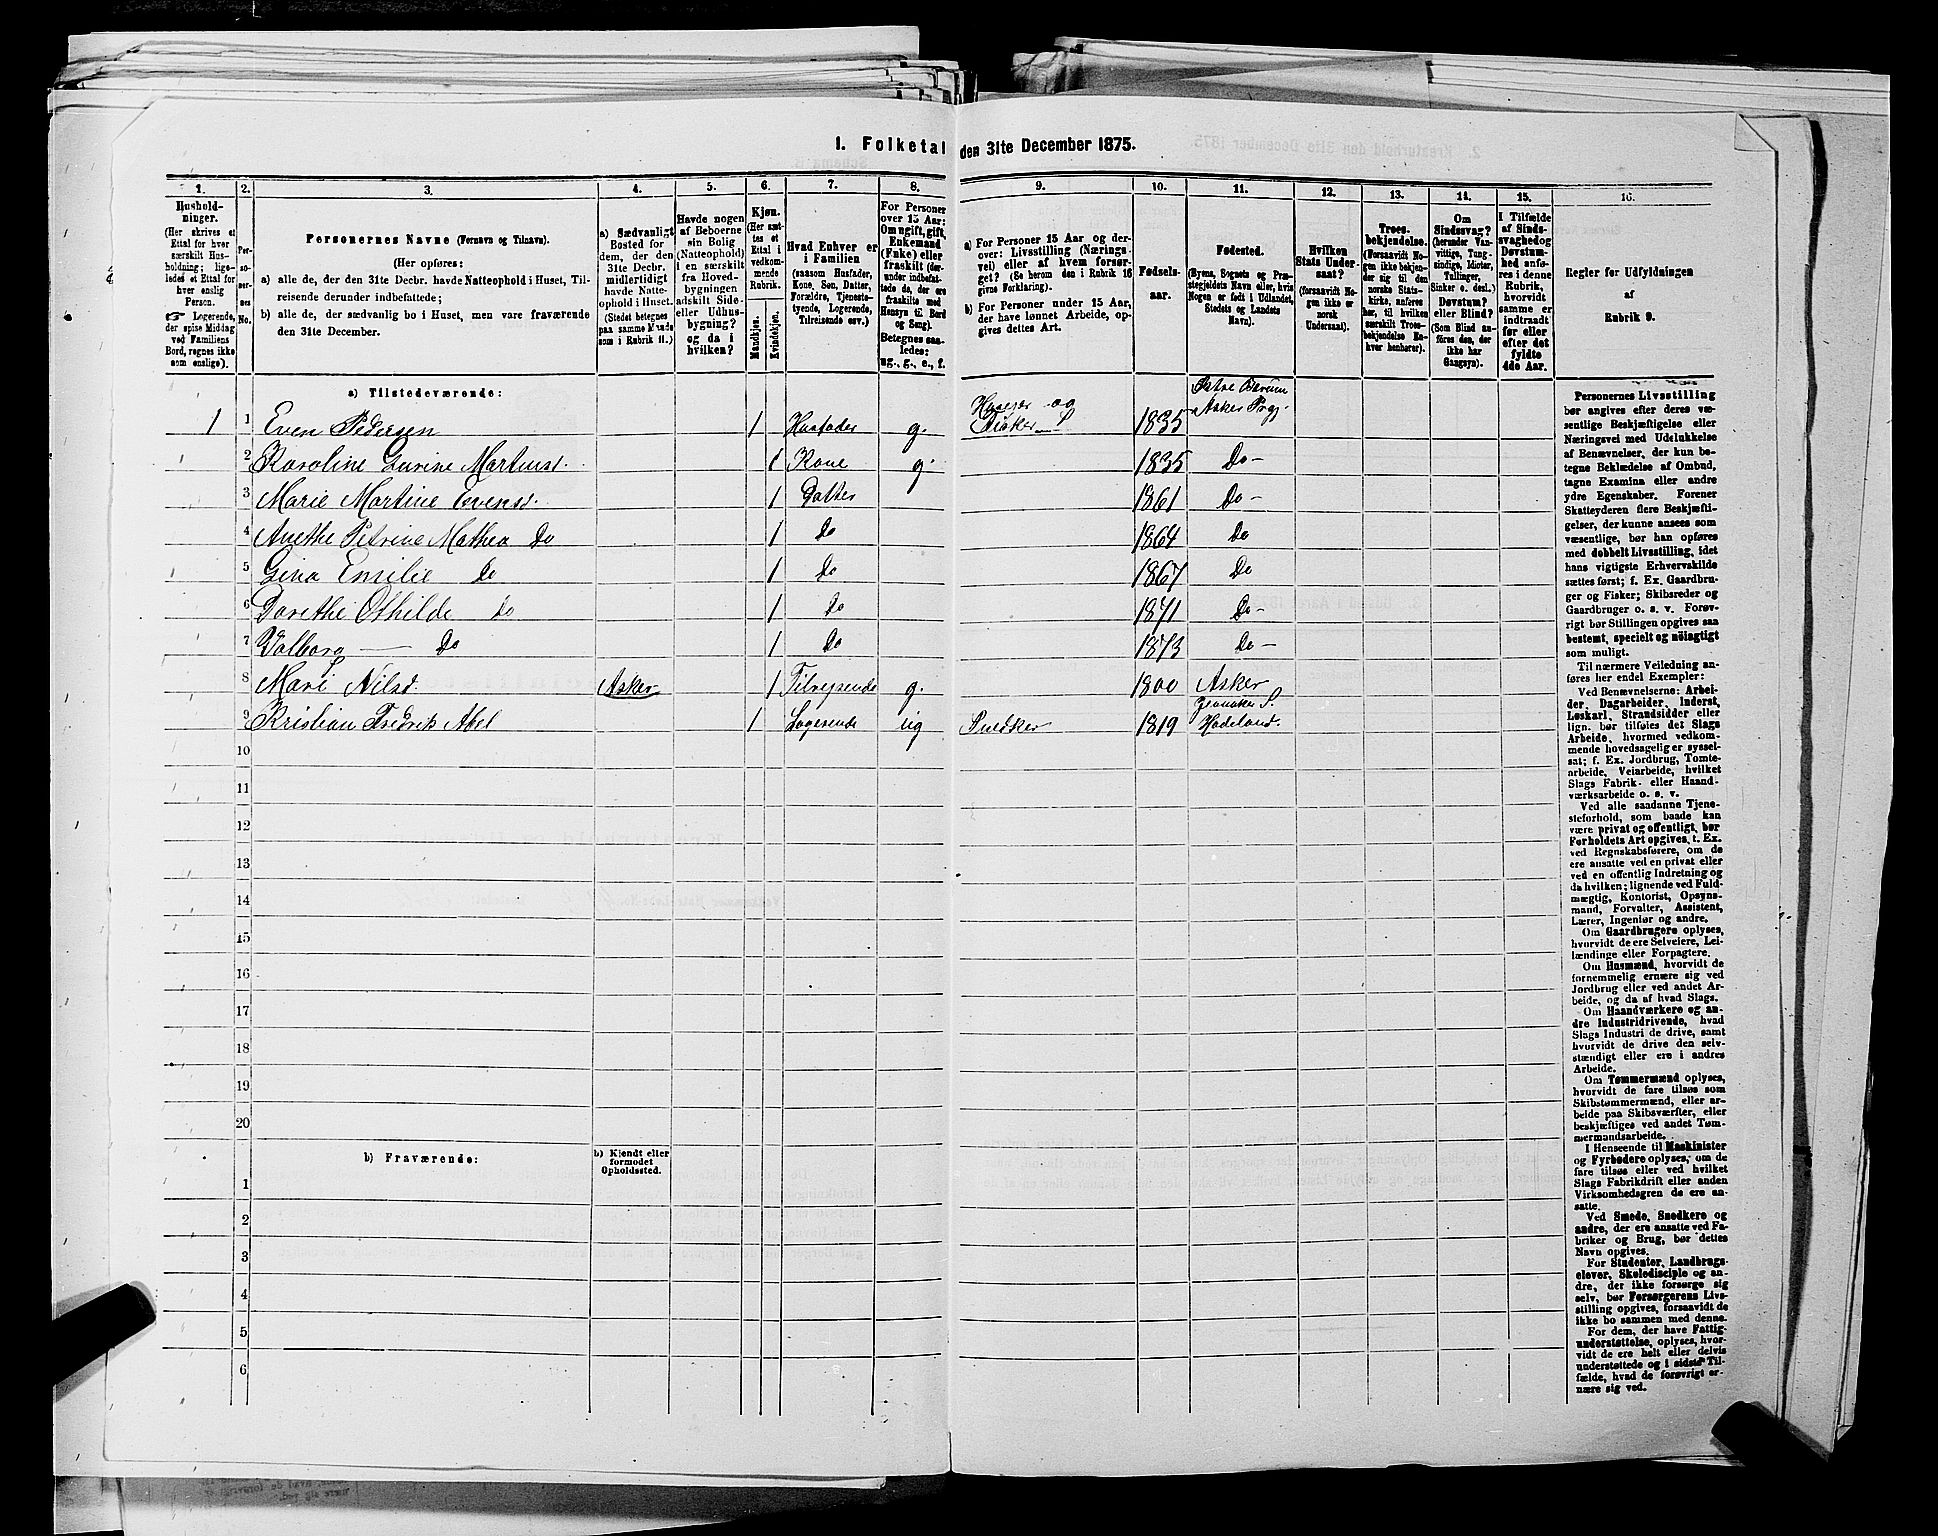 1. Folketal den 31te December 1875.
1. 2. 3. 4. 5. 6. 7. 8. 9. 10. 11. 12. 13. 14. 15. 16.
Hushold-
ninger.
(Her skrives et
Ettal for hver
særskilt Hus-
holdning; lige-
ledes et Ettal for
hver enslig
Person.
☞ Logerende,
der spise Middag
ved Familiens
Bord, regnes ikke
som enslige).
Per-
so-
ner-
nes
No.
Personernes Navne (Fornavn og Tilnavn).
(Her opføres:
a) alle de, der den 31te Decbr. havde Natteophold i Huset, Til-
reisende derunder indbefattede;
b) alle de, der sædvanlig bo i Huset, men vare fraværende
den 31te December.
a) Sædvanligt
Bosted for
dem, der den
31te Decbr.
midlertidigt
havde Natte-
ophold i Huset.
(Stedet betegnes
paa samme Maade
som i Rubrik 11.)
Havde nogen
af Beboerne
sin Bolig
(Natteophold)
i en særskilt
fra Hoved-
bygningen
adskilt Side-
eller Udhus-
bygning?
og da i
hvilken?
Kjøn.
(Her sæt-
tes et
Ettal i
vedkom-
mende
Rubrik.
Mandkjøn.
Kvindekjøn.
Hvad Enhver er
i Familien
(saasom Husfader,
Kone, Søn, Datter,
Forældre, Tjeneste-
tyende, Logerende,
Tilreisende osv.)
For Personer
over 15 Aar:
Om ugift, gift,
Enkemand
(Enke) eller
fraskilt (der-
under indbefat-
tede de, der ere
fraskilte med
Hensyn til Bord
og Seng).
Betegnes saa-
ledes:
ug., g., e., f.
a) For Personer 15 Aar og der-
over: Livsstilling (Nærings-
vei) eller af hvem forsør-
get? (Se herom den i Rubrik 16
givne Forklaring).
b) For Personer under 15 Aar,
der have lønnet Arbeide, op-
gives dettes Art.
Fødsels-
aar.
Fødested.
(Byens, Sognets og Præ-
stegjeldets Navn eller, hvis
Nogen er født i Udlandet,
Stedets og Landets
Navn).
Hvilken
Stats Under-
saat?
(forsaavidt No-
gen ikke er
norsk
Undersaat).
Troes-
bekjendelse.
(Forsaavidt No-
gen ikke bekjen-
der sig til den
norske Stats-
kirke, anføres
her, til hvilken
særskilt Troes-
bekjendelse En-
hver henhører).
Om
Sindssvag?
(herunder Van-
vittige, Tung-
sindige, Idioter,
Tullinger,
Sinker o. desl.)
Døvstum?
eller Blind?
(Som Blind an-
føres den, der
ikke har
Gangsyn).
I Tilfælde
af Sinds-
svaghed og
Døvstum-
hed anfø-
res i denne
Rubrik,
hvorvidt
samme er
indtraadt
før eller
efter det
fyldte
4de Aar.
Regler for Udfyldningen
af
Rubrik 9.
a) Tilstedeværende:
1 1 Even Pedersen 1 Husfader g. Huseier og 1835 Østre Bærum
Asker Prgj.
2 Karoline Gurine Martinsd. 1 Kone g. 1835 Do -
3 Marie Martine Evensd. 1 Datter 1861 Do -
4 Anethe Petrine Mathea Do 1 Do 1864 Do
5 Gina Emilie Do 1 Do 1867 Do
6 Dorethe Othilde Do 1 Do 1871 Do -
7 Valborg — Do 1 Do 1873 Do -
8 Mari Nilsd. Asker 1 Tilreysende g. 1800 Asker
9 Kristian Fredrik Abel 1 Logerende ug Snedker 1819 Hadeland.
10
11
12
13
14
15
16
17
18
19
20
b) Fraværende:
b) Kjendt eller
formodet
Opholdssted.
1
2
3
4
5
6
Personernes Livsstilling
bør angives efter deres væ-
sentlige Beskjæftigelse eller
Næringsvei med Udelukkelse
af Benævnelser, der kun be-
tegne Beklædelse af Ombud,
tagne Examina eller andre
ydre Egenskaber. Forener
Skatteyderen flere Beskjæfti-
gelser, der kunne ansees som
væsentlige, bør han opføres
med dobbelt Livsstilling, idet
hans vigtigste Erhvervskilde
sættes først; f. Ex. Gaardbru-
ger og Fisker; Skibsreder og
Gaardbruger o. s. v. Forøv-
rigt bør Stillingen opgives saa
bestemt, specielt og nöiagtigt
som muligt.
Til nærmere Veiledning an-
føres her endel Exempler:
Ved Benævnelserne: Arbei-
der, Dagarbeider, Inderst,
Løskarl, Strandsidder eller
lign. bør tilføies det Slags
Arbeide, hvormed vedkom-
mende hovedsagelig er syssel-
sat; f. Ex. Jordbrug, Tomte-
arbeide, Veiarbeide, hvilket
Slags Fabrik- eller Haand-
værksarbeide o. s. v.
Ved alle saadanne Tjene-
steforhold, som baade kan
være privat og offentligt, bør
Forholdets Art opgives, t. Ex.
ved Regnskabsførere, om de
ere ansatte ved en privat eller
ved en offentlig Indretning og
da hvilken; lignende ved Fuld-
mægtig, Kontorist, Opsyns-
mand, Forvalter, Assistent,
Lærer, Ingeniør og andre.
Om Gaardbrugere oplyses,
hvorvidt de ere Selveiere, Lei-
lændinge eller Forpagtere.
Om Husmænd, hvorvidt de
fornemmelig ernære sig ved
Jordbrug eller ved andet Ar-
beide, og da af hvad Slags.
Om Haandværkere og an-
dre Industridrivende, hvad
Slags Industri de drive, samt
hvorvidt de drive den selv-
stændigt eller ere i andres
Arbeide.
Om Tømmermænd oplyses,
hvorvidt de fare tilsøs som
Skibstømmermænd, eller ar-
beide paa Skibsværfter, eller
beskjæftiges ved andet Tøm-
mermandsarbeide.
I Henseende til Maskinister
og Fyrbødere oplyses, om de
fare tilsøs eller ved hvilket
Slags Fabrikdrift eller anden
Virksomhedsgren de ere an-
satte.
Ved Smede, Snedkere og
andre, der ere ansatte ved Fa-
briker og Brug, bør dettes
Navn opgives.
For Studenter, Landbrugs-
elever, Skoledisciple og an-
dre, der ikke forsørge sig
selv, bør Forsørgerens Livs-
stilling opgives, forsaavidt de
ikke bo sammen med denne.
For dem, der have Fattig-
understøttelse, oplyses, hvor-
vidt de ere helt eller delvis
understøttede og i sidste Til-
fælde, hvad de forøvrigt er-
nære sig ved.